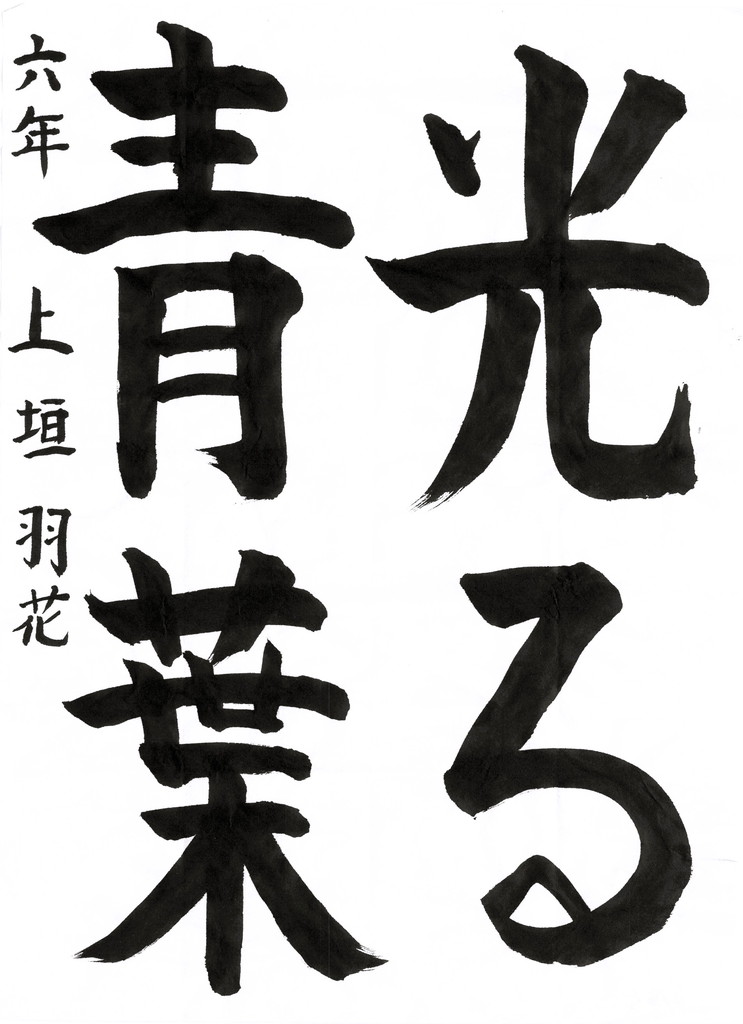 光る
青葉
六年 上垣羽花